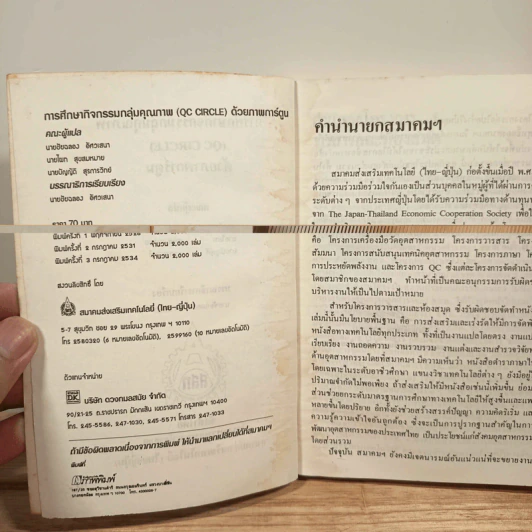 การศึกษากิจกรรมกลุ่มคุณภาพ (QC CIRCLE) ด้วยภาพการ์ตูน
คณะผู้แปล
นายชัยฉลอง อิศวเสนา
นายไผท สุขสมหมาย
นายปัญญัติ สุรการวิทย์
บรรณาธิการเรียบเรียง
นายชัยฉลอง อิศวเสนา
ราคา 70 บาท
พิมพ์ครั้งที่ 2 กรกฎาคม 2531 จำนวน 2,000 เล่ม
พิมพ์ครั้งที่ 3 กรกฎาคม 2534 จำนวน 2,000 เล่ม
สงวนลิขสิทธิ์ โดย
สมาคมส่งเสริมเทคโนโลยี (ไทย-ญี่ปุ่น)
5-7 สุขุมวิท ซอย 29 พระโขนง กรุงเทพ ฯ 10110
โทร 2580320 (6 หมายเลขอัตโนมัติ), 2599160 (10 หมายเลขอัตโนมัติ)
ตัวแทนจำหน่าย
บริษัท ดวงกมลสมัย จำกัด
โทร. 245-5586, 247-1030, 245-5571 โทรสาร 247-1033
ถ้ามีข้อผิดพลาดเนื่องจากการพิมพ์ ให้นำมาแลกเปลี่ยนได้ที่สมาคมฯ
พิมพ์ที่
คำนำนายกสมาคมฯ
สมาคมส่งเสริมเทคโนโลยี (ไทย-ญี่ปุ่น) ก่อตั้งขึ้นเมื่อปี พ.ศ
ด้วยความร่วมมือร่วมใจกันเองเป็นส่วนบุคคลในหมู่ผู้ที่ได้ผ่านการ
ระดับต่าง ๆ จากประเทศญี่ปุ่นโดยได้รับความร่วมมือทางด้านทุน
จาก The Japan-Thailand Economic Cooperation Society
คือ โครงการเครื่องมือวัดอุตสาหกรรม โครงการวารสาร
สัมมนา โครงการสนับสนุนเทคนิคอุตสาหกรรม โครงการภาษา
การประหยัดพลังงาน และโครงการ QC ซึ่งแต่ละโครงการจัดดำเนิน
โดยสมาชิกของสมาคมฯ ทำหน้าที่เป็นคณะอนุกรรมการรับผิด
บริหารงานให้เป็นไปตามเป้าหมาย
สำหรับโครงการวารสารและห้องสมุด ซึ่งรับผิดชอบจัดทำหนัง
เล่มนี้นั้นมีนโยบายพื้นฐาน คือ การส่งเสริมและเร่งรัดให้มีการจัดพิ
หนังสือทางเทคโนโลยีทุกประเภท ทั้งที่เป็นงานแปลโดยตรง งานแป
เรียบเรียง งานถอดความ งานรวบรวม งานแต่งและงานสำรวจวิจัย
ด้านอุตสาหกรรมโดยที่สมาคมฯ มีความเห็นว่า หนังสือตำราภาษาไ
โดยเฉพาะในระดับอาชีวศึกษา แขนงวิชาเทคโนโลยีต่าง ๆ ยังมีอยู่
ปริมาณจำกัดไม่พอเพียง ถ้าส่งเสริมให้มีหนังสือเช่นนี้เพิ่มขึ้น ย่อม
ส่วนช่วยยกระดับมาตรฐานการศึกษาทางเทคโนโลยีให้สูงขึ้นและแพ
หลายขึ้นโดยปริยาย อีกทั้งยังช่วยสร้างสรรค์ปัญญา ความคิดริเริ่ม แ
ความรู้ความเข้าใจอันถูกต้อง ซึ่งจะเป็นการปูรากฐานสำคัญในการ
พัฒนาอุตสาหกรรมของประเทศไทย เป็นประโยชน์แก่สังคมอุตสาหกรรม
โดยส่วนรวม
ปัจจุบัน สมาคมฯ ยังคงมีเจตนารมณ์อันแน่วแน่ที่จะขยายงาน